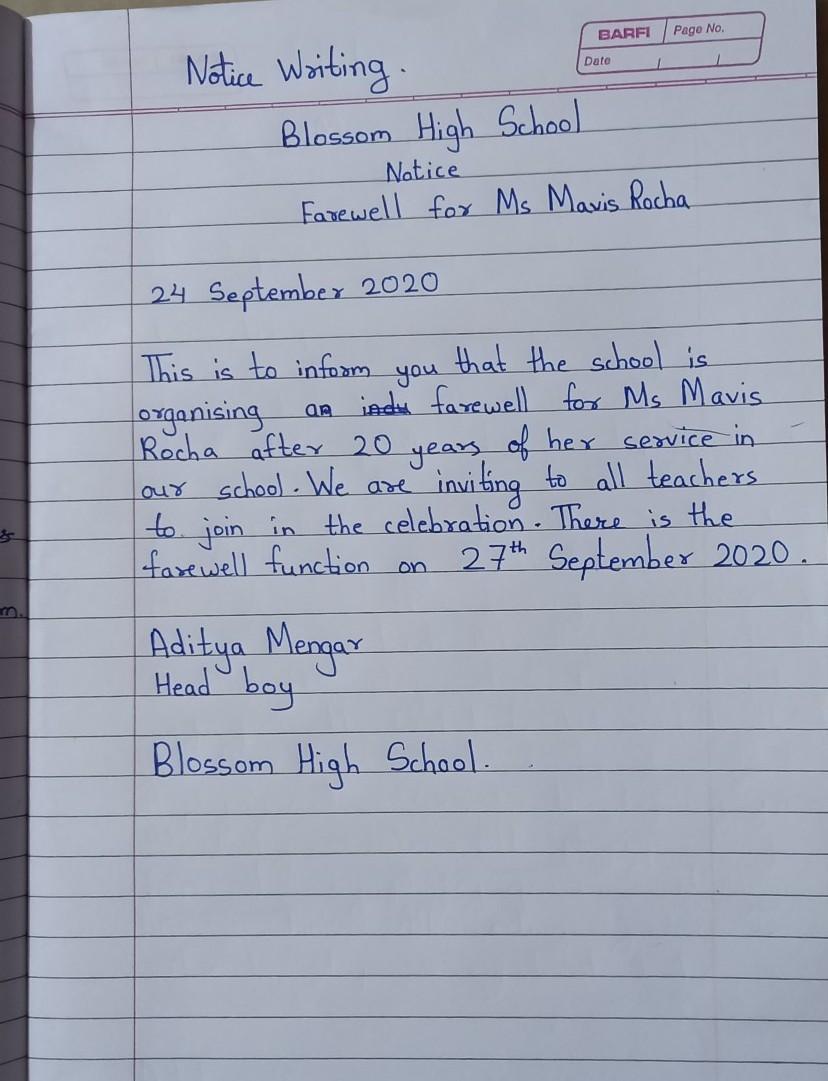 BARFI Page No.
Date / /
Notice Writing.
Blossom High School
Notice
Farewell for Ms Mavis Rocha
24 September 2020
This is to inform you that the school is
organising an farewell for Ms Mavis
Rocha after 20 years of her service in
our school. We are inviting to all teachers
to join in the celebration. There is the
farewell function on 27th September 2020.
Aditya Mengar
Head boy
Blossom High School.